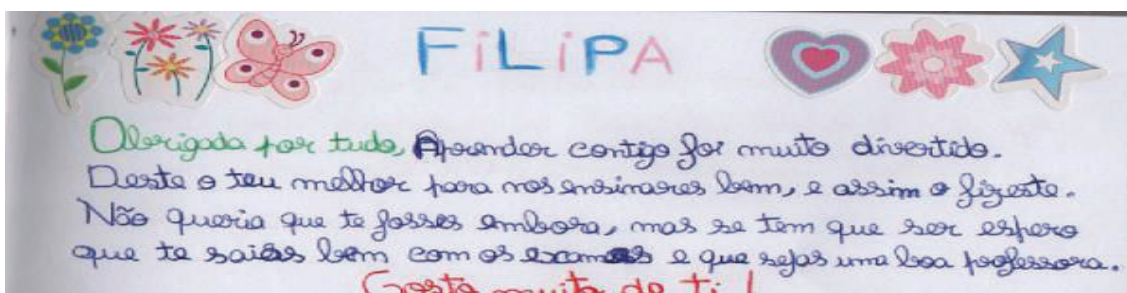 FiLiPA
Obrigada por tudo, Aprender contigo foi muito divertido.
Deste o teu melhor para nos ensinares bem, e assim o fizeste.
Não queria que te fosses embora, mas se tem que ser espero
que te saias bem com os exames e que sejas uma boa professora.
Gosto muito de ti!